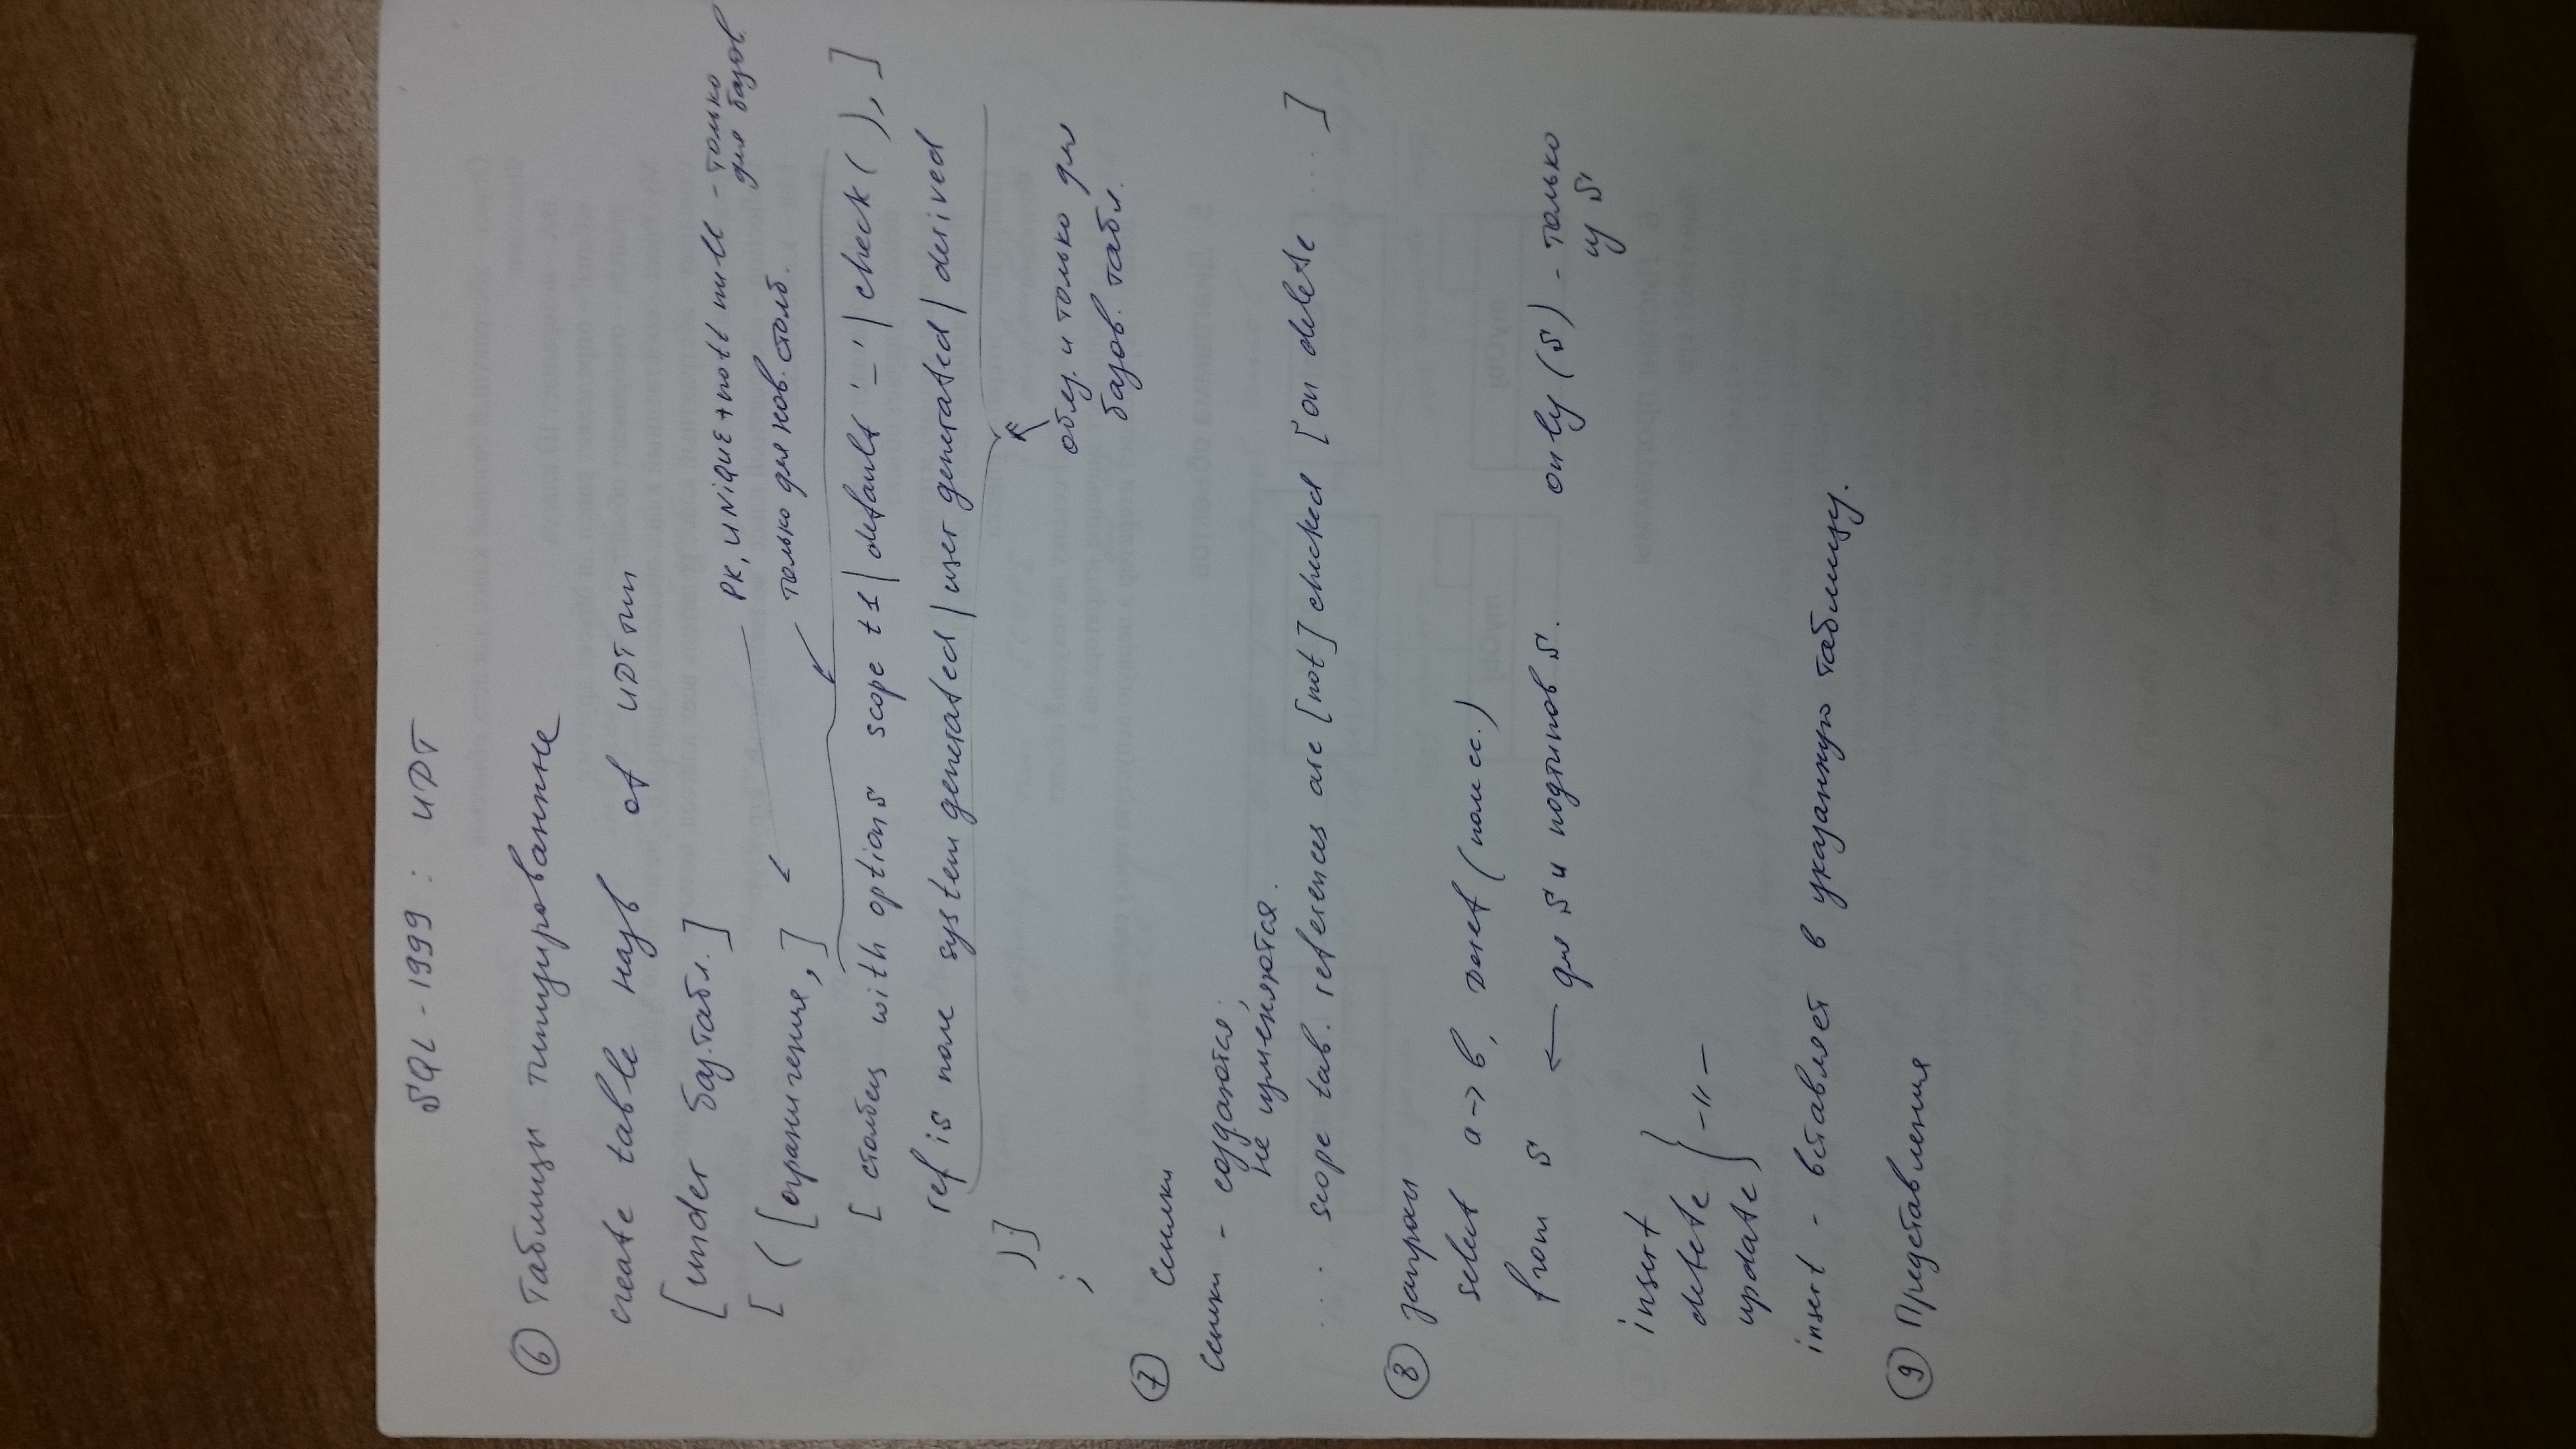 SQL - 1999 : UDT
⑥ Таблицы типизированные
create table назв of UDTтип
[under баз.табл.]
PK, UNIQUE + nott null - только
для базов.
[ ( [ограничения,]
только для нов. столб.
[ столбец with options scope t1 | default '_' | check ( ), ]
ref is поле system generated | user generated | derived
)]
;
обяз. и только для
базов. табл.
⑦ Ссылки
Ссылки - создаются,
не изменяются.
.... scope tab. references are [not] checked [on delete ... ]
⑧ запросы
select a -> b, Deref (поле сс.)
from S ← для S и подтипов S. only (S) - только
из S
insert
delete } -〃-
update
insert - вставляет в указанную таблицу.
⑨ Представления